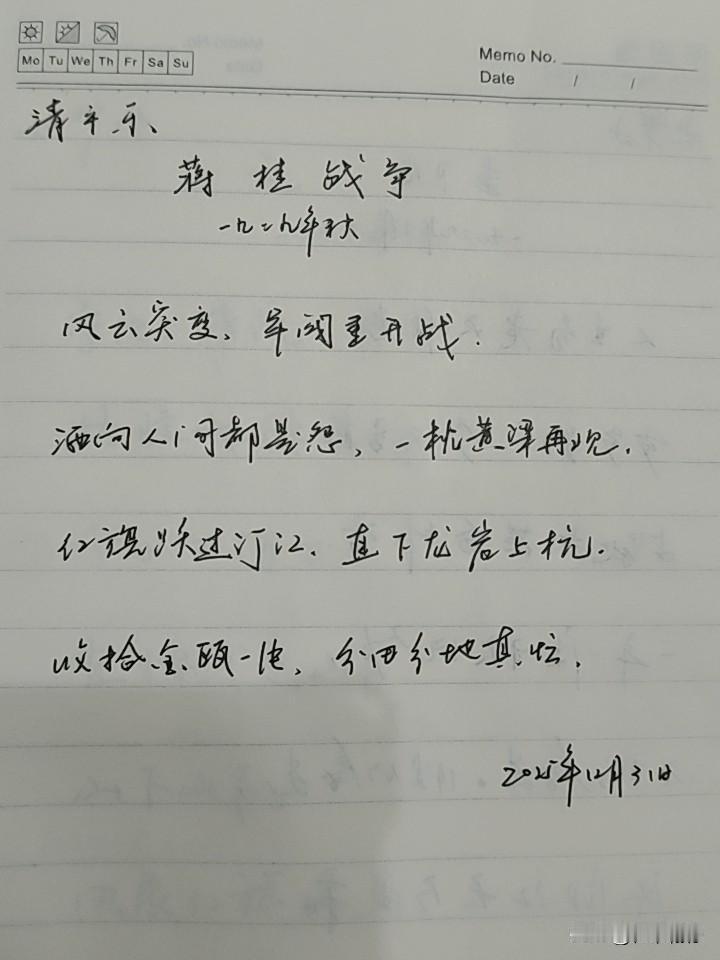 Mo Tu We Th Fr Sa Su
Memo No.
Date / /
清平乐、
蒋桂战争
一九二九年秋
风云突变、军阀重开战.
洒向人间都是怨,一枕黄粱再现.
红旗跃过汀江、直下龙岩上杭.
收拾金瓯一片、分田分地真忙.
2025年12月31日